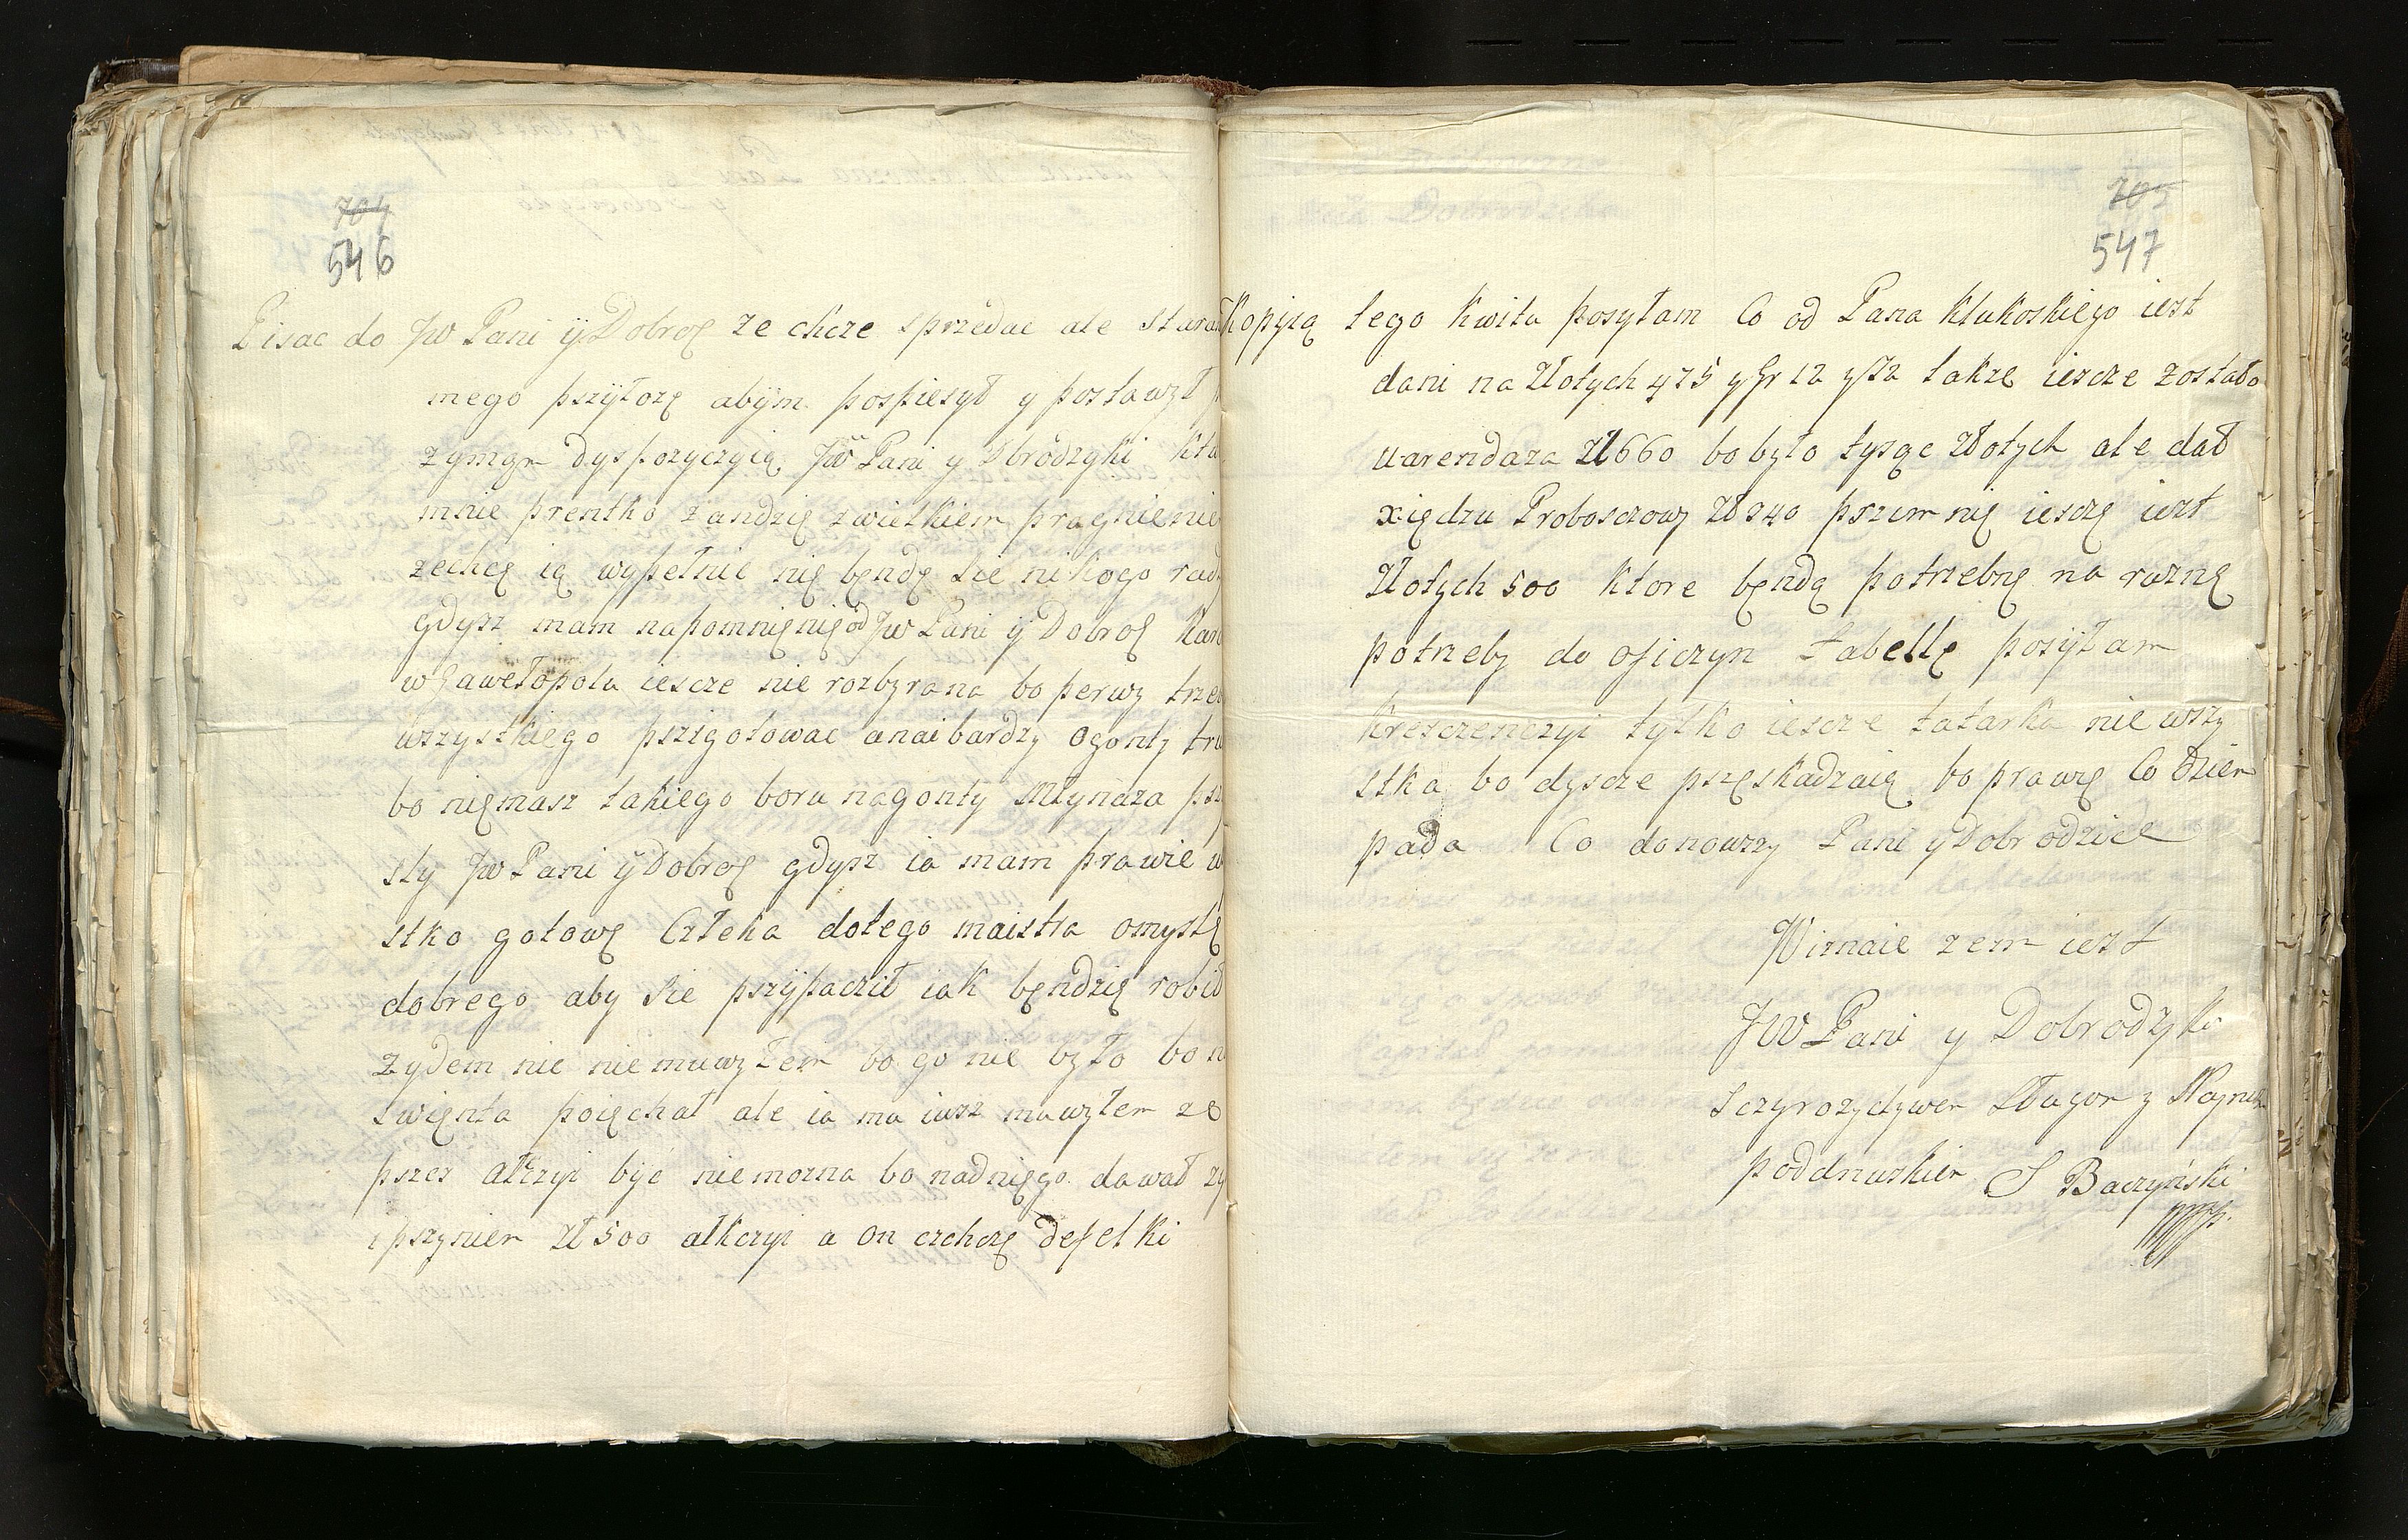 704
546
Pisac do JW Pani ÿ Dobroſ ze chcze sprzedac ale stara
mego pszÿłozę abÿm pospiesył y postawzł
zymgn dyspozyczyią JW Pani y Dbrodzyki
mnie prentko zandzię zwielkiem pragnienie
zechcę ią wypełnic nię będę sie nikogo radz
gdysz mam napomnięnię od JW Pani ÿ Dobroſ
w Gawełopolu iescze nie rozbzrana bo perwz trze
wszystkiego pszsgotowac anaibardzy ogonty
bo nięmasz takiego boru nagonty Młynaza
sły JW Pani ÿ Dobroſ gdysz ia mam prawie w
stko gotowę Człeka dotego maistra omysłę
dobrego aby sie pszÿpacził iak będzię robił
zydem nic niemuwzłem bo go nie bzło bo
swięnta poięchał ale ia mu iusz muwzłem ze
pszes atkzyi być niemozna bo nadnięgo dawał
ipszynier Zł 500 atkczyi a on czchczę deſetki
705
547
Kopyią tego Kwitu posyłam Co od Pana Klukoskiego iest
dani na Złotych 475 y Gr 12 y 1/2 takzę iescze zostało
uarendaza Zł 660 bo bzło tysąc Złotych ale dał
xiędzu Proboszczowz Zł 340 pszemnię iesczę iest
Złotych 500 ktore będą potrzebnę na roznę
potrzebz do oficzyn tabellę posÿłam
kresczenczyi tylko iescze tatarka nie wszy
stka bo dyscze pszęskadzaią bo prawię Co dzien
pada Co donowszy Pani y Dobrodzice
Wiznaie zem iest
JW Pani y Dobrodzyki
Sczyrozyczywem Sługom y Naynisz
poddnuszkiem S Baczyński
mp.